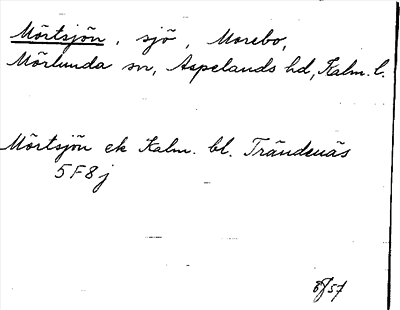 Mörtsjön, sjö, Morebo,
Mörlunda sn, Aspelands hd, Kalm. l.
Mörtsjön ek Kalm. bl. Trändenäs
5F8j
57